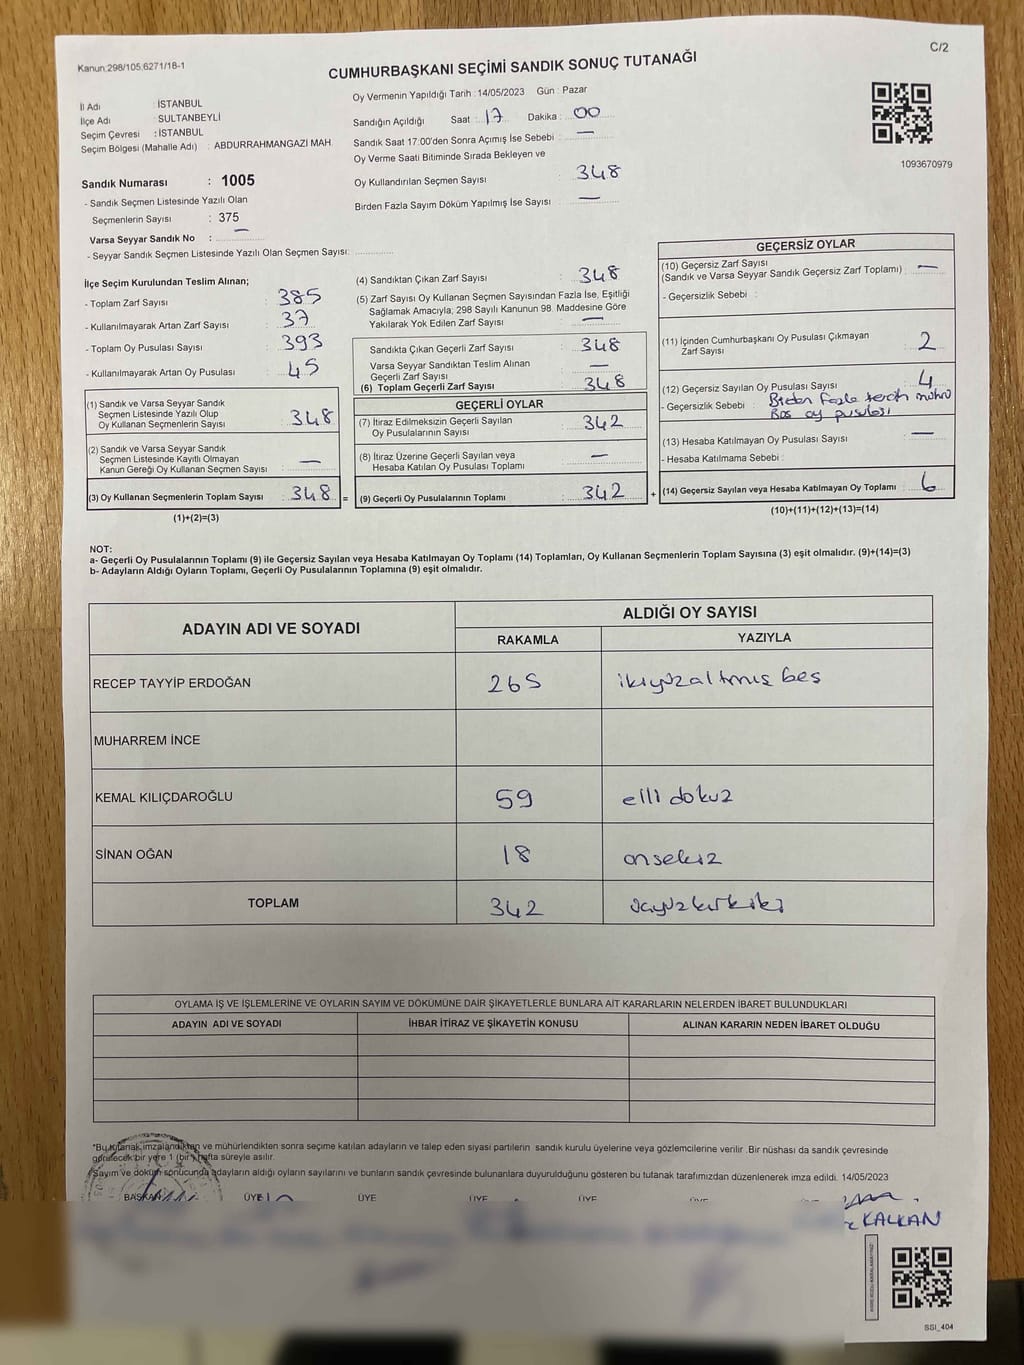 Kanun:298/105.6271/18-1
C/2
CUMHURBAŞKANI SEÇİMİ SANDIK SONUÇ TUTANAĞI
İl Adı : İSTANBUL
İlçe Adı : SULTANBEYLİ
Seçim Çevresi : İSTANBUL
Seçim Bölgesi (Mahalle Adı) : ABDURRAHMANGAZİ MAH.
Sandık Numarası : 1005
- Sandık Seçmen Listesinde Yazılı Olan
Seçmenlerin Sayısı : 375
Varsa Seyyar Sandık No : —
- Seyyar Sandık Seçmen Listesinde Yazılı Olan Seçmen Sayısı:
Oy Vermenin Yapıldığı Tarih : 14/05/2023 Gün : Pazar
Sandığın Açıldığı Saat : 17 Dakika : 00
Sandık Saat 17:00'den Sonra Açımış İse Sebebi : —
Oy Verme Saati Bitiminde Sırada Bekleyen ve
Oy Kullandırılan Seçmen Sayısı : 348
Birden Fazla Sayım Döküm Yapılmış İse Sayısı : —
1093670979
İlçe Seçim Kurulundan Teslim Alınan;
- Toplam Zarf Sayısı : 385
- Kullanılmayarak Artan Zarf Sayısı : 37
- Toplam Oy Pusulası Sayısı : 393
- Kullanılmayarak Artan Oy Pusulası : 45
(1) Sandık ve Varsa Seyyar Sandık
Seçmen Listesinde Yazılı Olup
Oy Kullanan Seçmenlerin Sayısı : 348
(2) Sandık ve Varsa Seyyar Sandık
Seçmen Listesinde Kayıtlı Olmayan
Kanun Gereği Oy Kullanan Seçmen Sayısı : —
(3) Oy Kullanan Seçmenlerin Toplam Sayısı : 348 =
(1)+(2)=(3)
(4) Sandıktan Çıkan Zarf Sayısı : 348
(5) Zarf Sayısı Oy Kullanan Seçmen Sayısından Fazla İse, Eşitliği
Sağlamak Amacıyla; 298 Sayılı Kanunun 98. Maddesine Göre
Yakılarak Yok Edilen Zarf Sayısı : —
Sandıkta Çıkan Geçerli Zarf Sayısı : 348
Varsa Seyyar Sandıktan Teslim Alınan
Geçerli Zarf Sayısı : —
(6) Toplam Geçerli Zarf Sayısı : 348
GEÇERLİ OYLAR
(7) İtiraz Edilmeksizin Geçerli Sayılan
Oy Pusulalarının Sayısı : 342
(8) İtiraz Üzerine Geçerli Sayılan veya
Hesaba Katılan Oy Pusulası Toplamı : —
(9) Geçerli Oy Pusulalarının Toplamı : 342 +
GEÇERSİZ OYLAR
(10) Geçersiz Zarf Sayısı
(Sandık ve Varsa Seyyar Sandık Geçersiz Zarf Toplamı) : —
- Geçersizlik Sebebi :
(11) İçinden Cumhurbaşkanı Oy Pusulası Çıkmayan
Zarf Sayısı : 2
(12) Geçersiz Sayılan Oy Pusulası Sayısı : 4
- Geçersizlik Sebebi : Birden fazla tercih mührü
Boş oy pusulası
(13) Hesaba Katılmayan Oy Pusulası Sayısı : —
- Hesaba Katılmama Sebebi :
(14) Geçersiz Sayılan veya Hesaba Katılmayan Oy Toplamı : 6
(10)+(11)+(12)+(13)=(14)
NOT:
a- Geçerli Oy Pusulalarının Toplamı (9) ile Geçersiz Sayılan veya Hesaba Katılmayan Oy Toplamı (14) Toplamları, Oy Kullanan Seçmenlerin Toplam Sayısına (3) eşit olmalıdır. (9)+(14)=(3)
b- Adayların Aldığı Oyların Toplamı, Geçerli Oy Pusulalarının Toplamına (9) eşit olmalıdır.
ADAYIN ADI VE SOYADI
ALDIĞI OY SAYISI
RAKAMLA YAZIYLA
RECEP TAYYİP ERDOĞAN 265 ikiyüzaltmış beş
MUHARREM İNCE
KEMAL KILIÇDAROĞLU 59 elli dokuz
SİNAN OĞAN 18 onsekiz
TOPLAM 342 üçyüzkırkiki
OYLAMA İŞ VE İŞLEMLERİNE VE OYLARIN SAYIM VE DÖKÜMÜNE DAİR ŞİKAYETLERLE BUNLARA AİT KARARLARIN NELERDEN İBARET BULUNDUKLARI
ADAYIN ADI VE SOYADI İHBAR İTİRAZ VE ŞİKAYETİN KONUSU ALINAN KARARIN NEDEN İBARET OLDUĞU
*Bu tutanak imzalandıktan ve mühürlendikten sonra seçime katılan adayların ve talep eden siyasi partilerin sandık kurulu üyelerine veya gözlemcilerine verilir .Bir nüshası da sandık çevresinde
görülecek bir yere 1 (bir) hafta süreyle asılır.
Sayım ve döküm sonucunda adayların aldığı oyların sayılarını ve bunların sandık çevresinde bulunanlara duyurulduğunu gösteren bu tutanak tarafımızdan düzenlenerek imza edildi. 14/05/2023
BAŞKAN ÜYE ÜYE ÜYE ÜYE ÜYE
KALKAN
SSİ_404